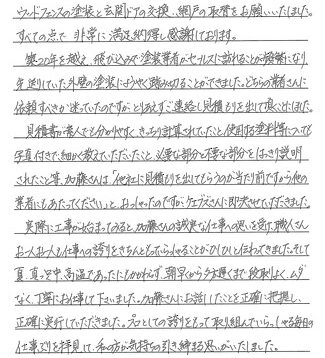 ウッドフェンスの塗装と玄関ドアの交換、網戸の取替をお願いいたしました。
すべての点で非常に満足納得し感謝しております。
築20年を越え、飛び込みで塗装業者がセールスに訪れることが頻繁になり
先送りしていた外壁の塗装にようやく踏み切ることができました。どちらの業者さんに
依頼すべきか迷っていたのですが、とりあえずご連絡し見積りを出して頂くと
見積書が素人でも分かりやすく、きっちり計算されていたこと、使用する塗料等について
写真付きで細かく教えていただいたこと、必要な部分と不要な部分をはっきり説明
されたこと等、加藤さんは「他社に見積りを出してもらうのが当たり前ですから他の
業者にもあたってください」とおっしゃったのですが に即決させていただきました。
実際に工事が始まってみると、加藤さんの誠実な仕事への思いを受け、職人さん
お一人お一人も仕事への誇りをきちんともっていらっしゃることがひしひしと伝わってきました。そして
夏真っ只中、高温であったにもかかわらず、朝早くから夕方遅くまで段取りよくムダ
なく、丁寧にお仕事して下さいました。加藤さんにお話ししたことを正確に把握し、
正確に実行していただきました。プロとしての誇りをもって取り組んでいらっしゃる毎日の
仕事ぶりを拝見して、私の方が気持ちの引き締まる思いがいたしました。